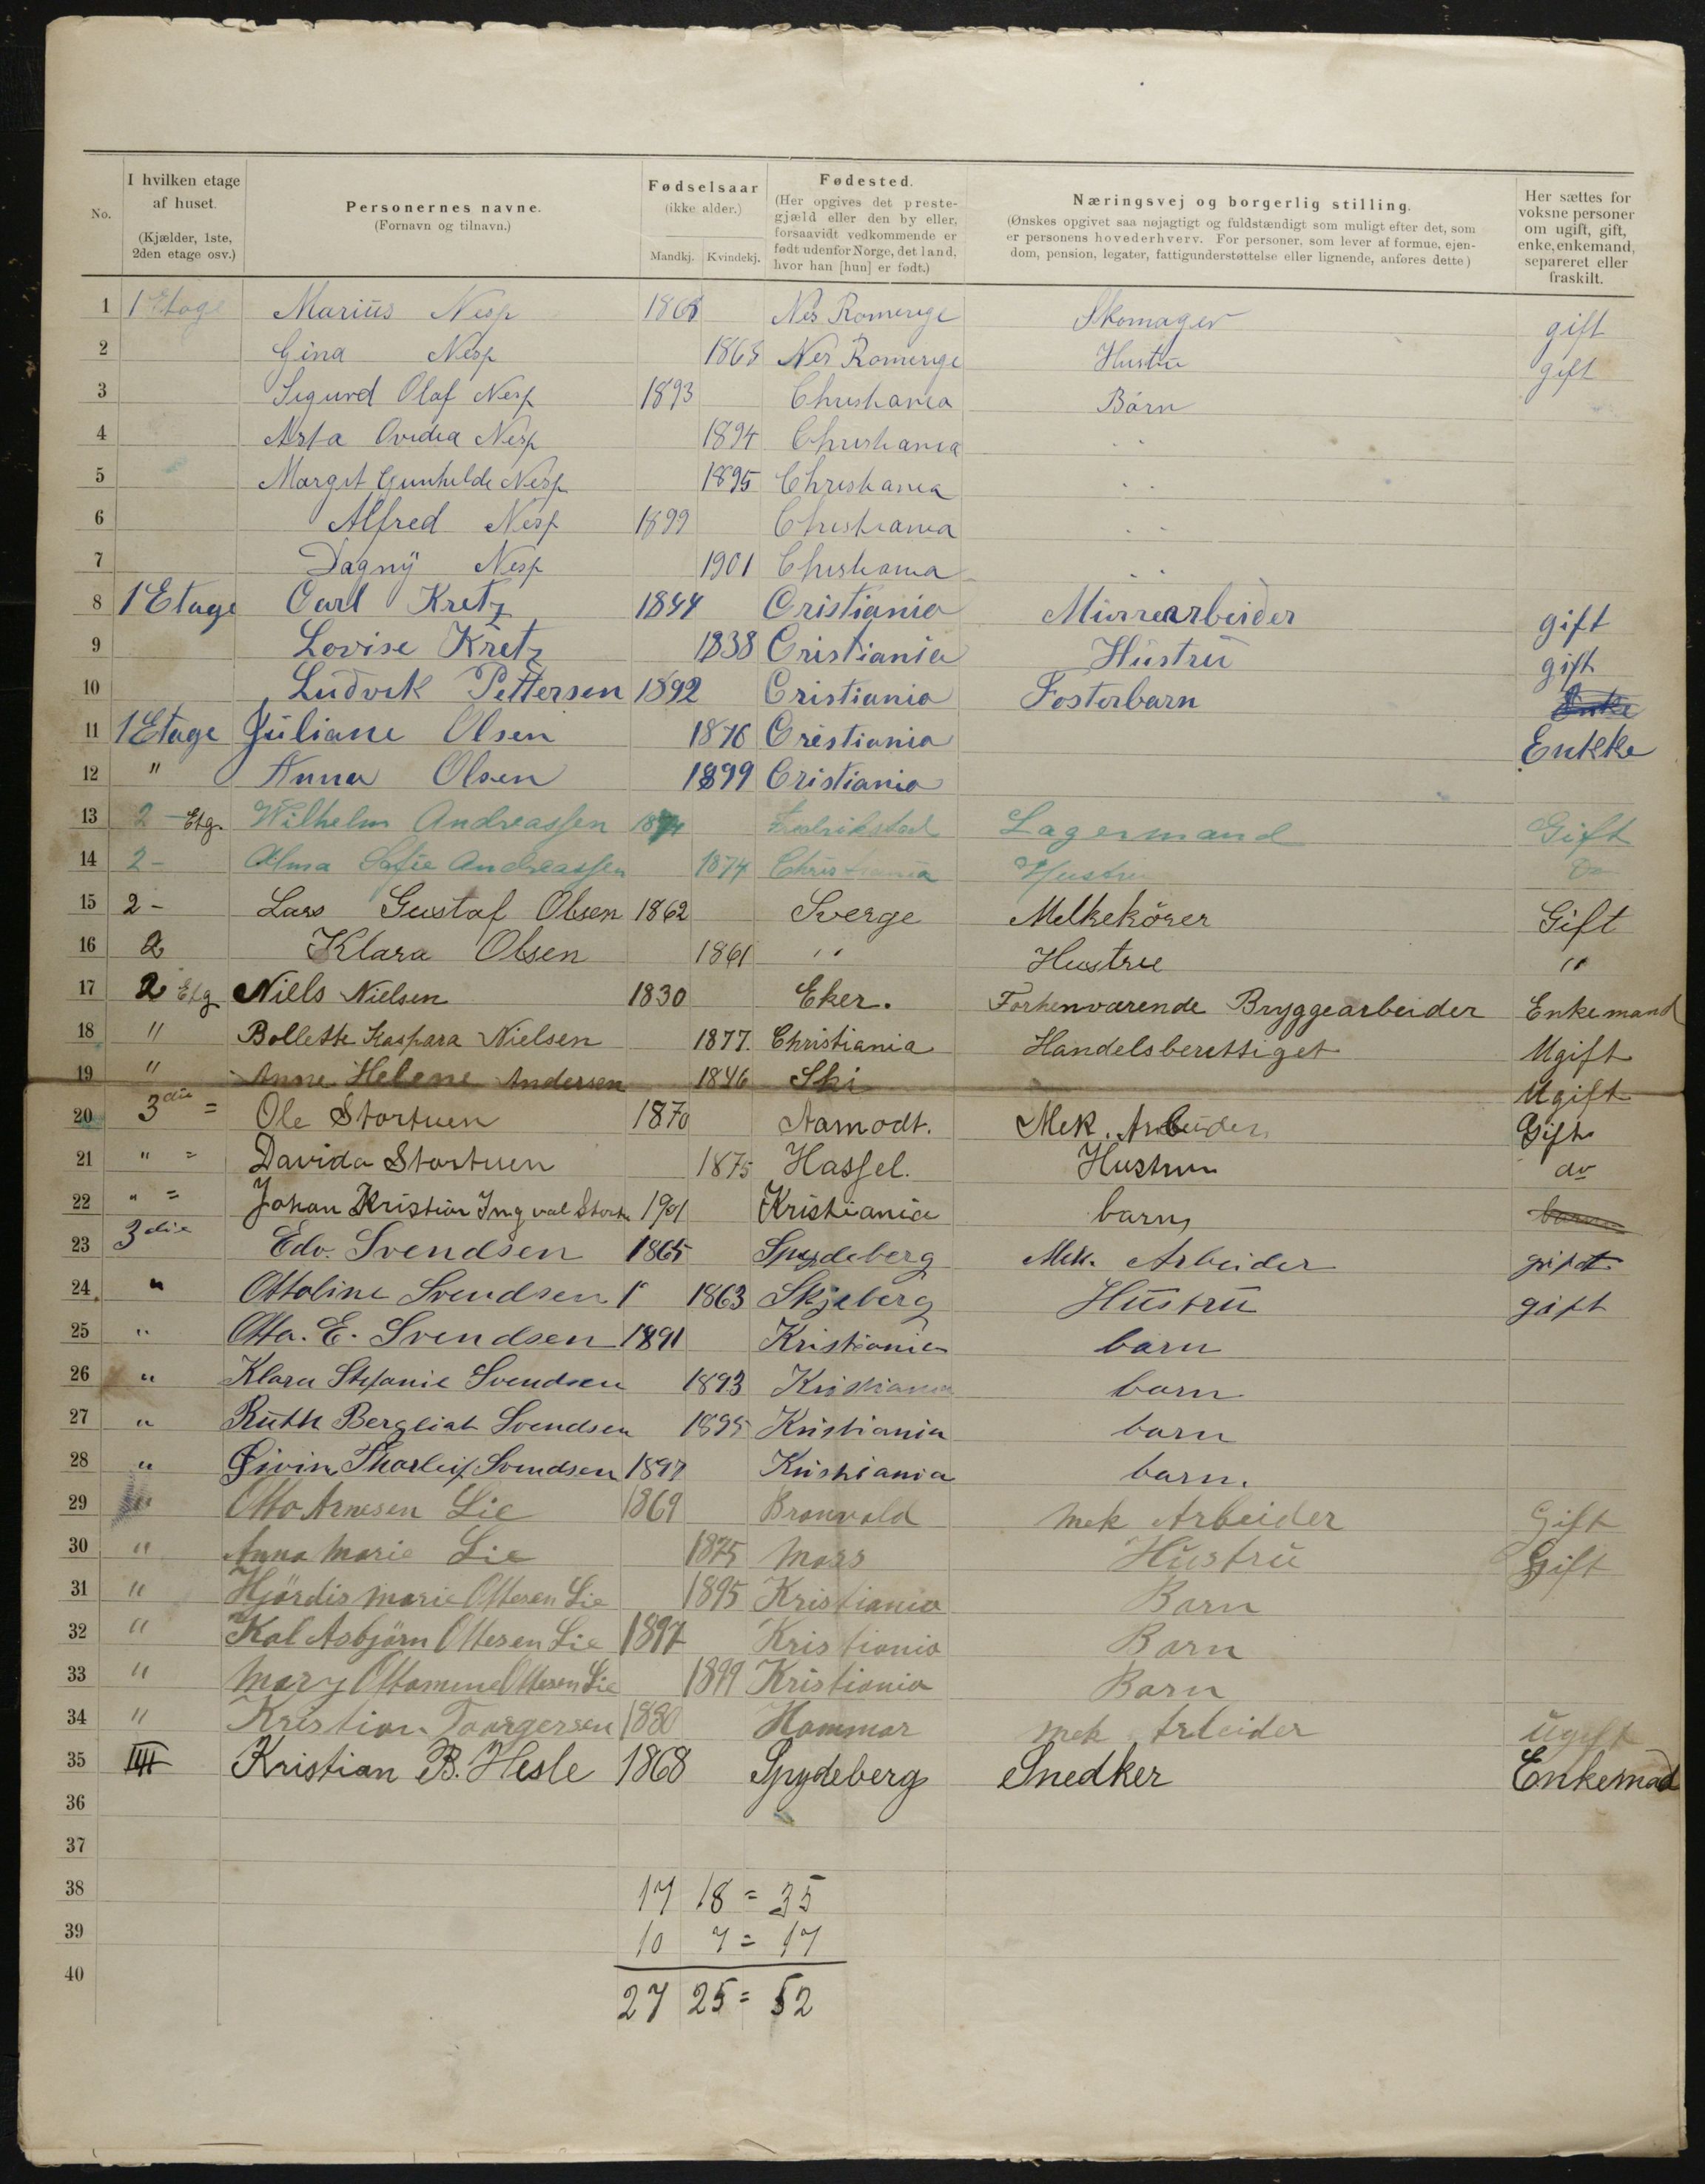 No.
I hvilken etage af huset. (Kjælder, 1ste, 2den etage osv.)
Personernes navne. (Fornavn og tilnavn.)
Fødselsaar (ikke alder.) Mandkj. Kvindekj.
Fødested. (Her opgives det prestegjæld eller den by eller, forsaavidt vedkommende er født udenfor Norge, det land, hvor han [hun] er født.)
Næringsvej og borgerlig stilling. (Ønskes opgivet saa nøjagtigt og fuldstændigt som muligt efter det, som er personens hovederhverv. For personer, som lever af formue, ejendom, pension, legater, fattigunderstøttelse eller lignende, anføres dette)
Her sættes for voksne personer om ugift, gift, enke, enkemand, separeret eller fraskilt.
1 1 Etage Marius Nesp Nes Romerige Skomager gift
2 Gina Nesp Nes Romerige Hustru gift
3 Sigurd Olaf Nesp 1893 Christiania Børn
4 Asta Ovidia Nesp 1894 Christiania " "
5 Margit Gunhilde Nesp 1895 Christiania " "
6 Alfred Nesp 1899 Christiania " "
7 Dagny Nesp 1901 Christiania " "
8 1 Etage Carl Kretz 1844 Cristiania Murrarbeider gift
9 Lovise Kretz 1838 Cristiania Hustru gift
10 Ludvik Pettersen 1892 Cristiania Fosterbarn Enke
11 1 Etage Juliane Olsen 1876 Cristiania Enkke
12 " Anna Olsen 1899 Cristiania
13 2 Etg. Wilhelm Andreassen Fredrikstad Lagermand Gift
14 2 - Alma Sofie Andreassen 1874 Christiania Hustru Do
15 2 - Lars Gustaf Olsen 1862 Sverge Melkekører Gift
16 2 Klara Olsen 1861 " Hustru "
17 2 Etg Niels Nielsen 1830 Eker. Forhenværende Bryggearbeider Enkemand
18 " Bollette Kaspara Nielsen 1877. Christiania Handelsberettiget Ugift
19 " Anne Helene Andersen 1846 Ski Ugift
20 3die = Ole Stortuen 1870 Aamodt. Mek. Arbeider Gift
21 " = Davida Stortuen 1875 Hassel. Hustru do
22 " = Johan Kristian Ingval Stort 1901 Kristiania barn barn
23 3die Edv. Svendsen 1865 Spydeberg Mek. Arbeider gift
24 " Ottoline Svendsen 1863 Skjeberg Hustru gift
25 " Otto. E. Svendsen 1891 Kristiania barn
26 " Klara Stefanie Svendsen 1893 Kristiania barn
27 " Ruth Bergliat Svendsen 1895 Kristiania barn
28 " Øivin Thorleif Svendsen 1897 Kristiania barn.
29 " Otto Arnesen Lie 1869 Mek Arbeider Gift
30 " Anna Marie Lie 1875 Moss Hustru Gift
31 " Hjørdis Marie Ottesen Lie 1895 Kristiania Barn
32 " Kal Asbjørn Ottesen Lie 1897 Kristiania Barn
33 " Mary Ottomine Ottesen Lie 1899 Kristiania Barn
34 " Kristian Taargersen 1880 Hammar Mek Arbeider Ugift
35 IIII Kristian B. Hesle 1868 Spydeberg Snedker Enkemad
36
37
38 17 18 = 35
39 10 7 = 17
40
27 25 = 52